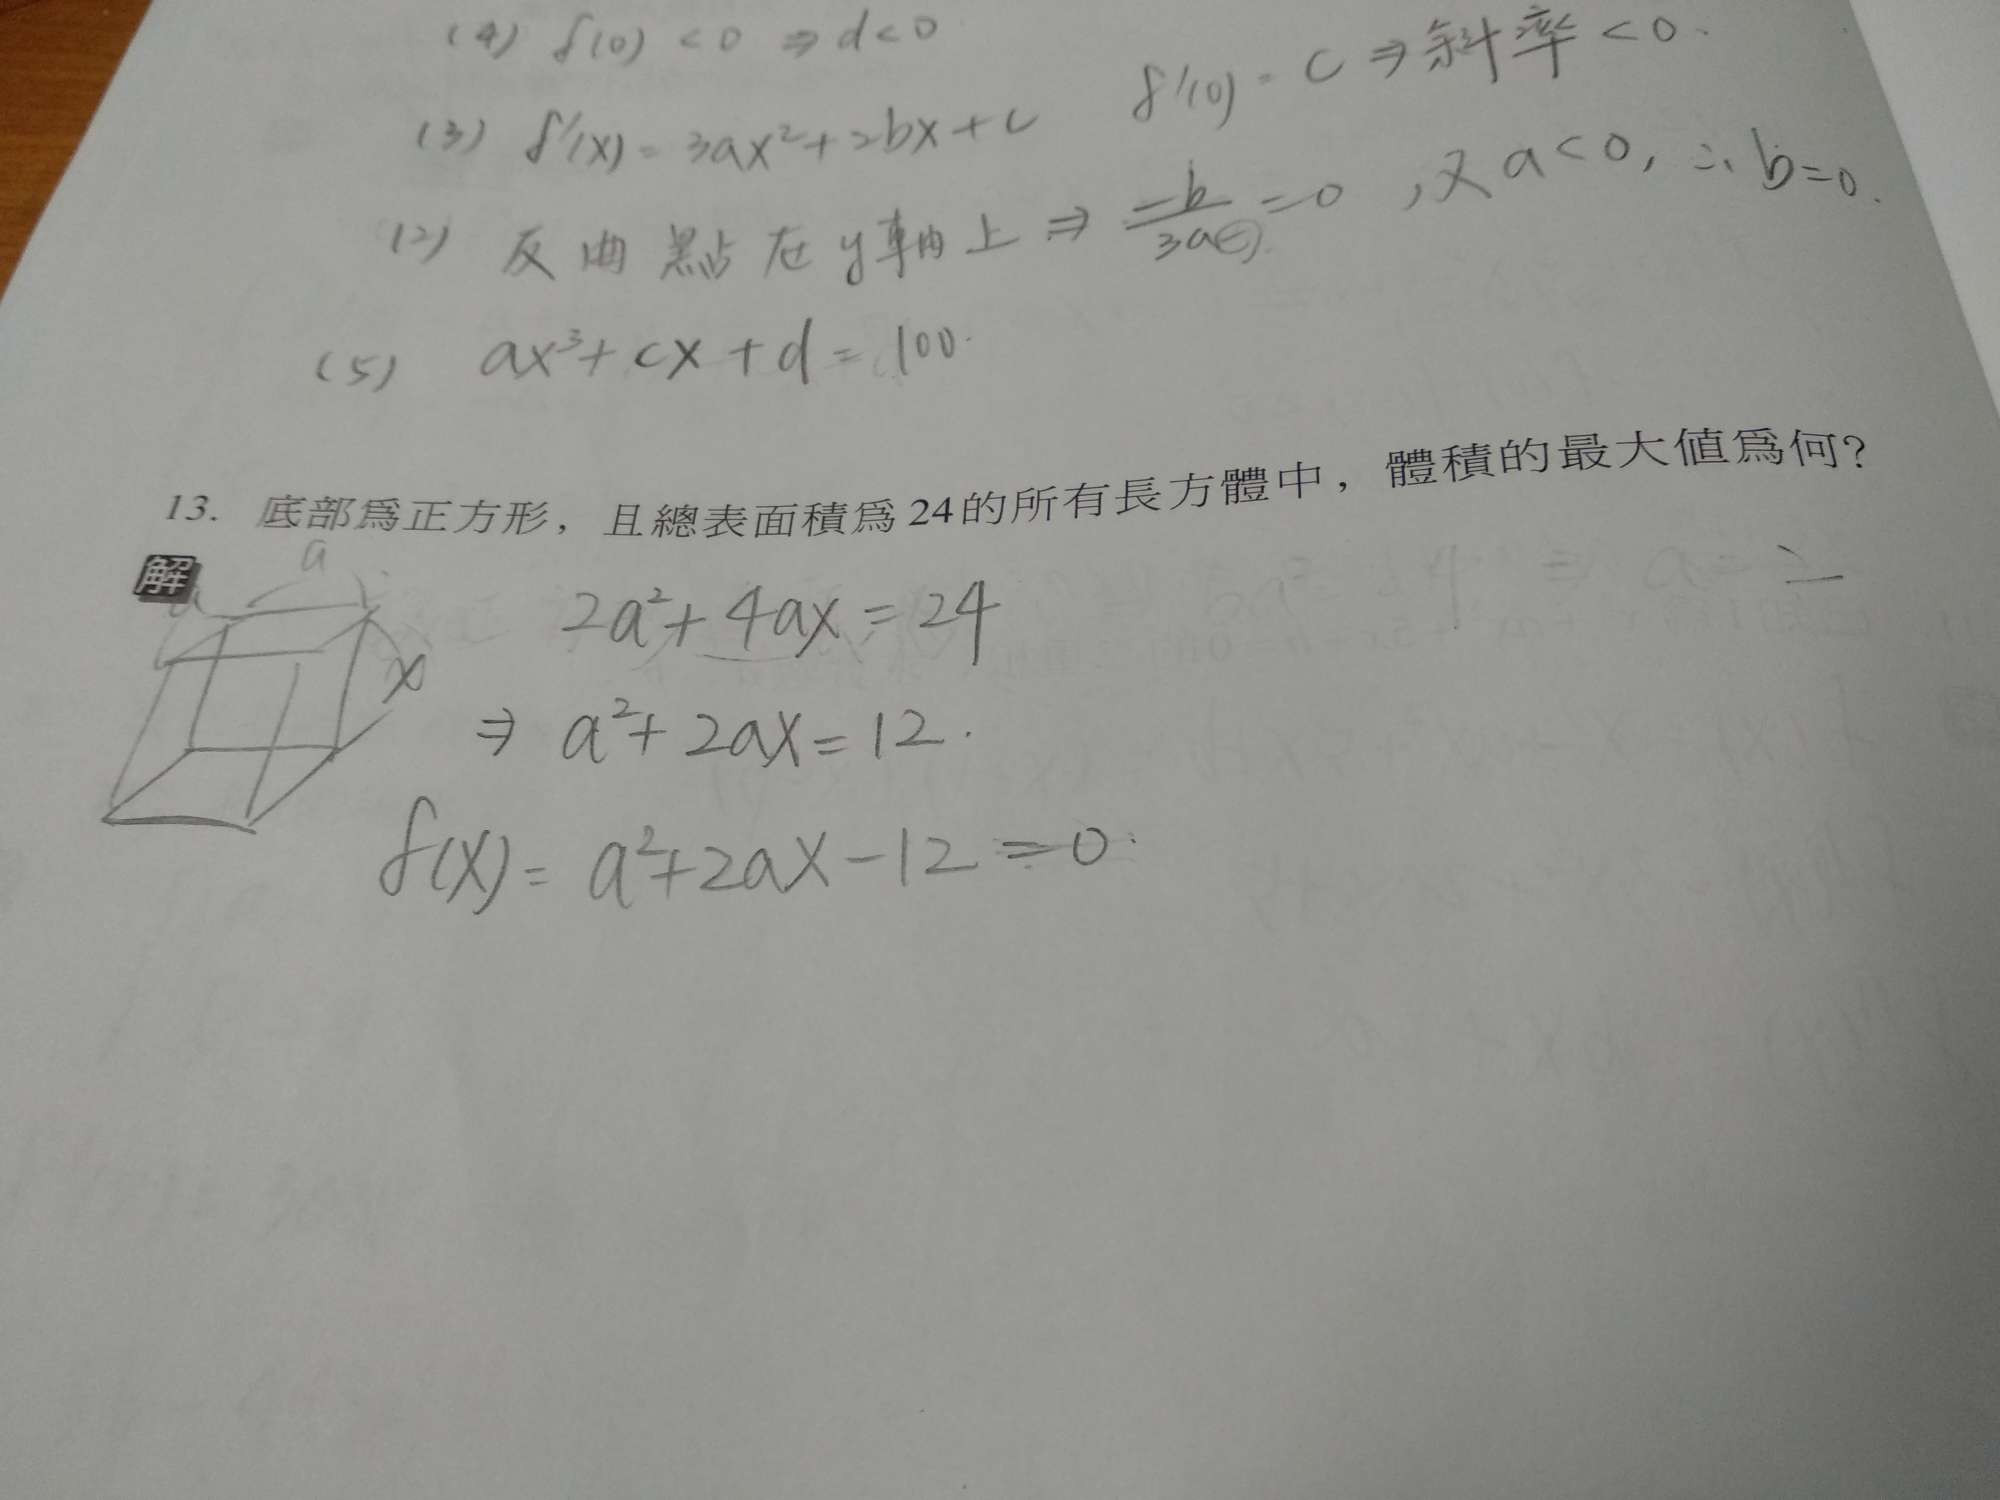 (4) f(0) < 0 ⇒ d < 0
f'(0) = c ⇒ 斜率 < 0.
(3) f'(x) = 3ax²+2bx+c
(2) 反曲點在y軸上 ⇒ -b/3a⊖ = 0 , 又 a < 0, ∴ b = 0.
(5) ax³+cx+d = 100.
13. 底部為正方形，且總表面積為24的所有長方體中，體積的最大值為何？
解
a
a
x
2a²+4ax=24
⇒ a²+2ax=12.
f(x)= a²+2ax-12=0.